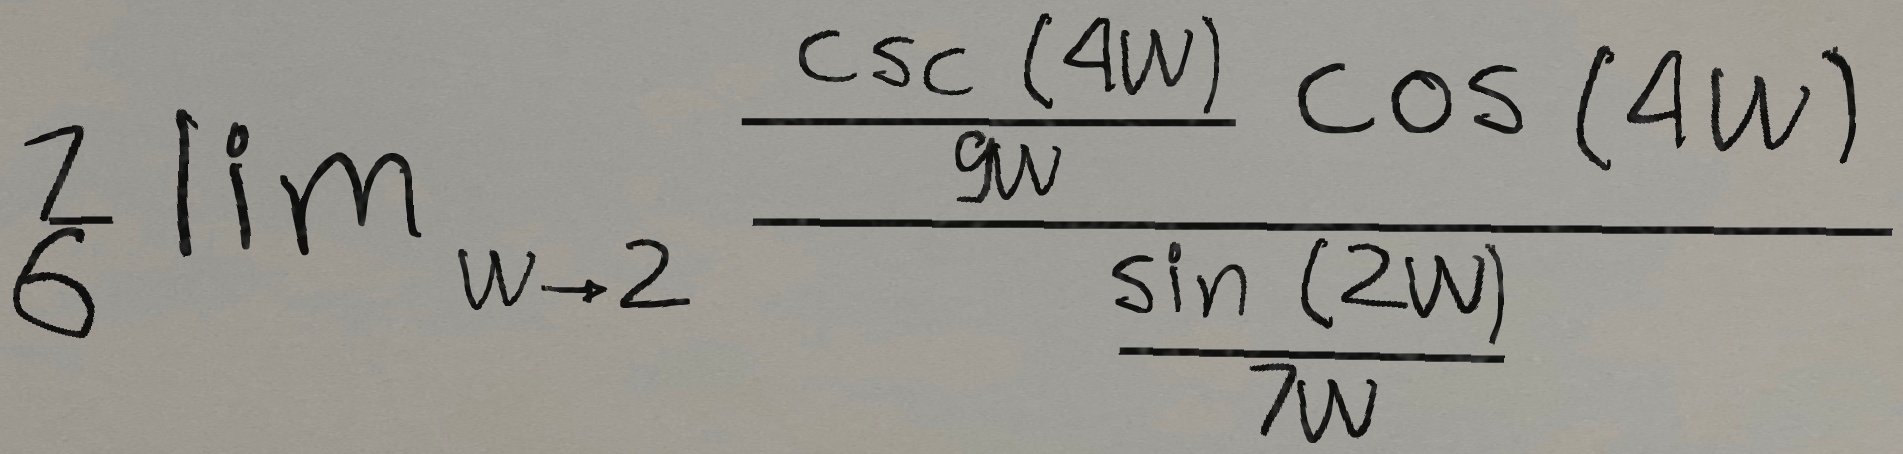 \frac{7}{6} \lim_{w \to 2} \frac{\frac{\csc(4w)}{9w} \cos(4w)}{\frac{\sin(2w)}{7w}}